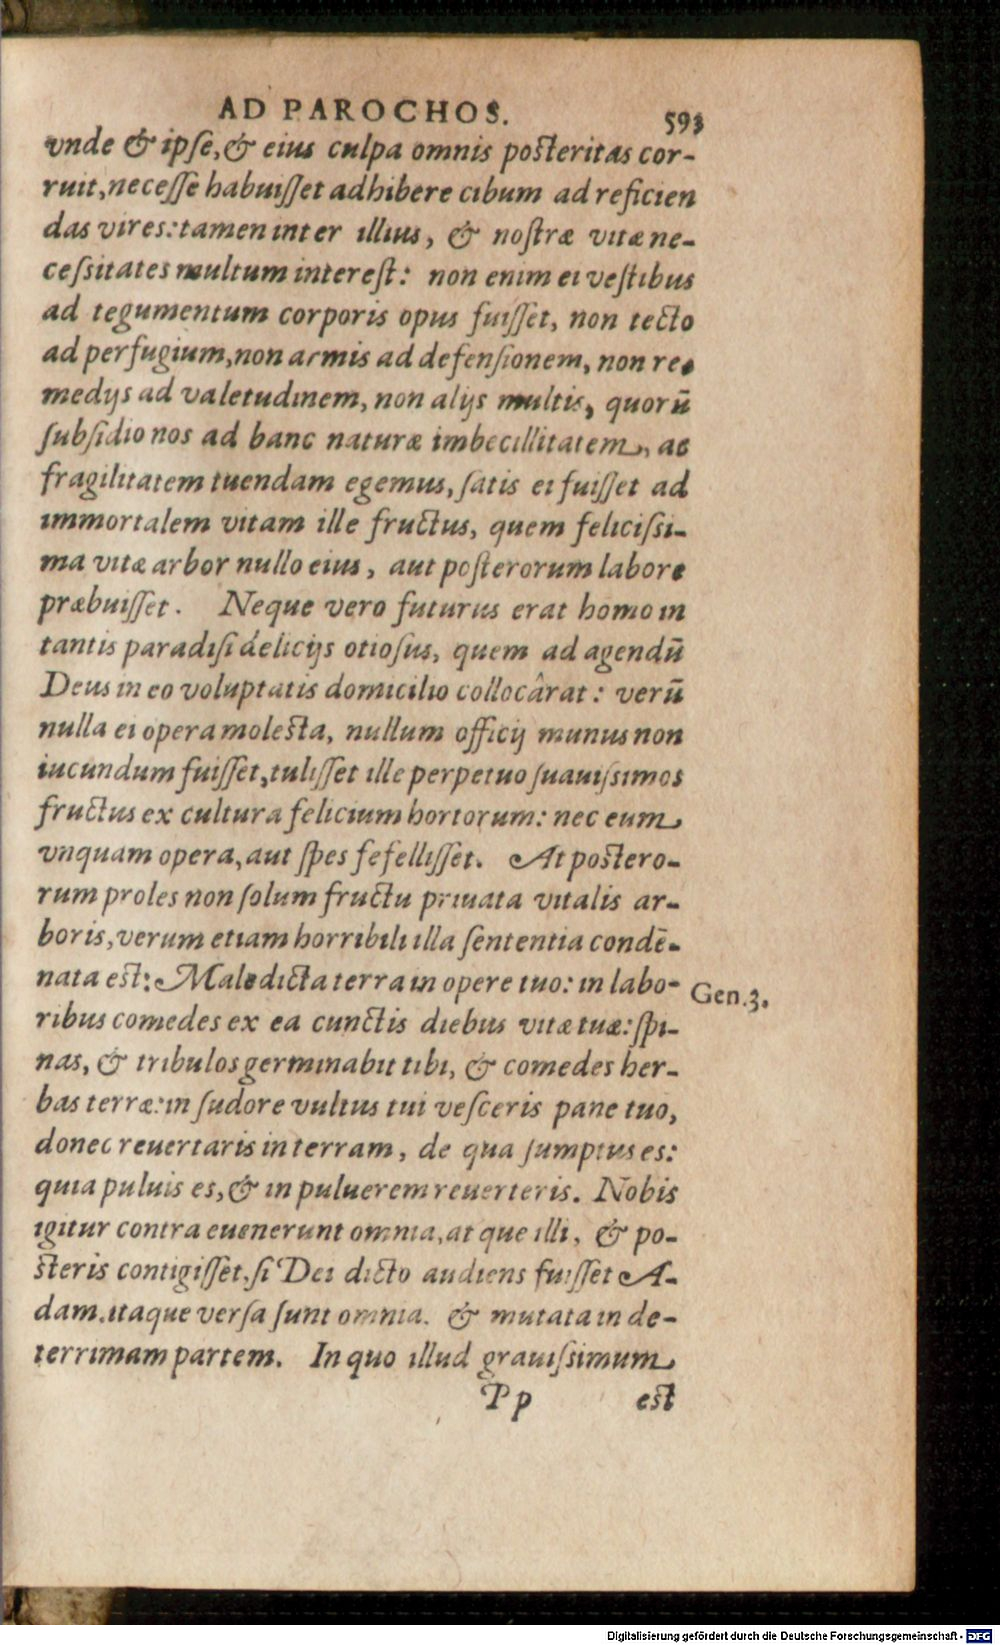 AD PAROCHOS.
593
vnde & ipſe, & eius culpa omnis poſteritas cor-
ruit, neceſſe habuiſſet adhibere cibum ad reficien
das vires: tamen inter illius, & noſtræ vitæ ne-
ceſsitates multum intereſt: non enim ei veſtibus
ad tegumentum corporis opus fuiſſet, non tecto
ad perfugium, non armis ad defenſionem, non re-
medijs ad valetudinem, non alijs multis, quorū
ſubſidio nos ad hanc naturæ imbecillitatem, ac
fragilitatem tuendam egemus, ſatis ei fuiſſet ad
immortalem vitam ille fructus, quem feliciſsi-
ma vitæ arbor nullo eius, aut poſterorum labore
præbuiſſet. Neque vero futurus erat homo in
tantis paradiſi delicijs otioſus, quem ad agendū
Deus in eo voluptatis domicilio collocârat: verū
nulla ei opera moleſta, nullum officij munus non
iucundum fuiſſet, tuliſſet ille perpetuo ſuauiſsimos
fructus ex cultura felicium hortorum: nec eum
vnquam opera, aut ſpes fefelliſſet. At poſtero-
rum proles non ſolum fructu priuata vitalis ar-
boris, verum etiam horribili illa ſententia condē-
nata eſt: Maledicta terra in opere tuo: in labo-
Gen.3.
ribus comedes ex ea cunctis diebus vitæ tuæ: ſpi-
nas, & tribulos germinabit tibi, & comedes her-
bas terræ: in ſudore vultus tui veſceris pane tuo,
donec reuertaris in terram, de qua ſumptus es:
quia puluis es, & in puluerem reuerteris. Nobis
igitur contra euenerunt omnia, atque illi, & po-
ſteris contigiſſet, ſi Dei dicto audiens fuiſſet A-
dam. itaque verſa ſunt omnia. & mutata in de-
terrimam partem. In quo illud grauiſsimum
Pp
eſt
Digitalisierung gefördert durch die Deutsche Forschungsgemeinschaft - DFG